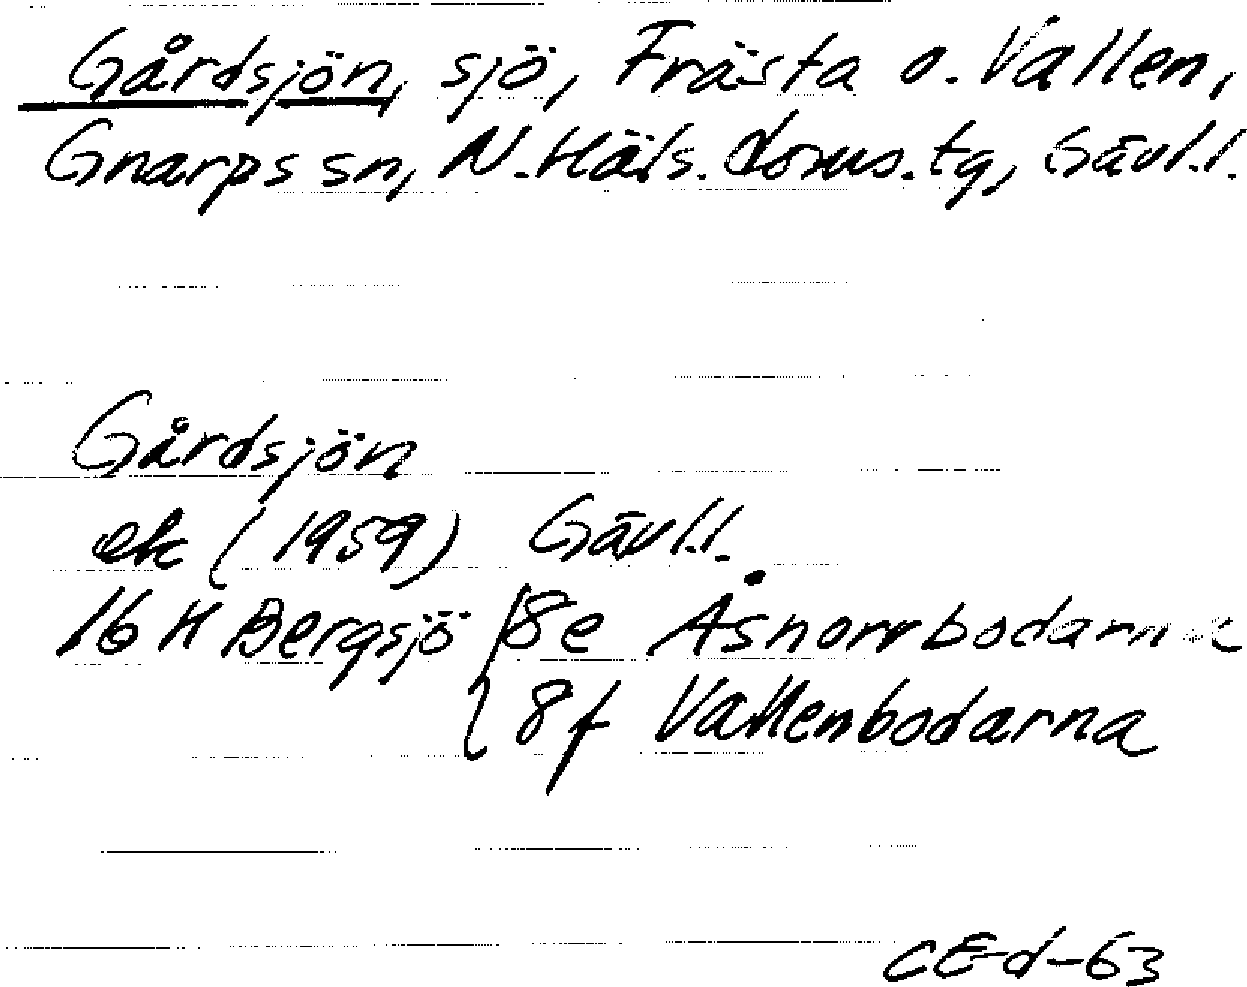 Gårdsjön, sjö, Frästa o. Vallen,
Gnarps sn, N. Häls. doms. tg, Gävl.l.
Gårdsjön
ek (1959) Gävl.l.
16 H Bergsjö { 8e Åsnorrbodarna
8f Vallenbodarna
CE-d-63